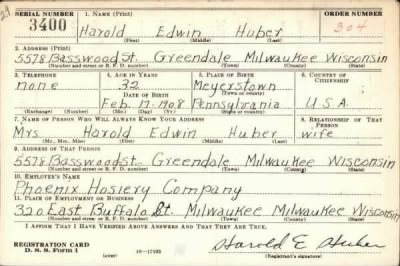 SERIAL NUMBER 1. NAME (Print) ORDER NUMBER
3400 Harold Edwin Huber 304
(First) (Middle) (Last)
2. ADDRESS (Print)
5578 Basswood St. Greendale Milwaukee Wisconsin
(Number and street or R. F. D. number) (Town) (County) (State)
3. TELEPHONE 4. AGE IN YEARS 5. PLACE OF BIRTH 6. COUNTRY OF CITIZENSHIP
none 32 Meyerstown
DATE OF BIRTH (Town or county)
Feb. 17 1908 Pennsylvania U.S.A.
(Exchange) (Number) (Mo.) (Day) (Yr.) (State or country)
7. NAME OF PERSON WHO WILL ALWAYS KNOW YOUR ADDRESS 8. RELATIONSHIP OF THAT PERSON
Mrs Harold Edwin Huber wife
(Mr., Mrs., Miss) (First) (Middle) (Last)
9. ADDRESS OF THAT PERSON
5578 Basswood St. Greendale Milwaukee Wisconsin
(Number and street or R. F. D. number) (Town) (County) (State)
10. EMPLOYER'S NAME
Phoenix Hosiery Company
11. PLACE OF EMPLOYMENT OR BUSINESS
320 East Buffalo St. Milwaukee Milwaukee Wisconsin
(Number and street or R. F. D. number) (Town) (County) (State)
I AFFIRM THAT I HAVE VERIFIED ABOVE ANSWERS AND THAT THEY ARE TRUE.
Harold E. Huber
REGISTRATION CARD
D. S. S. Form 1 (over) 16—17105 (Registrant's signature)